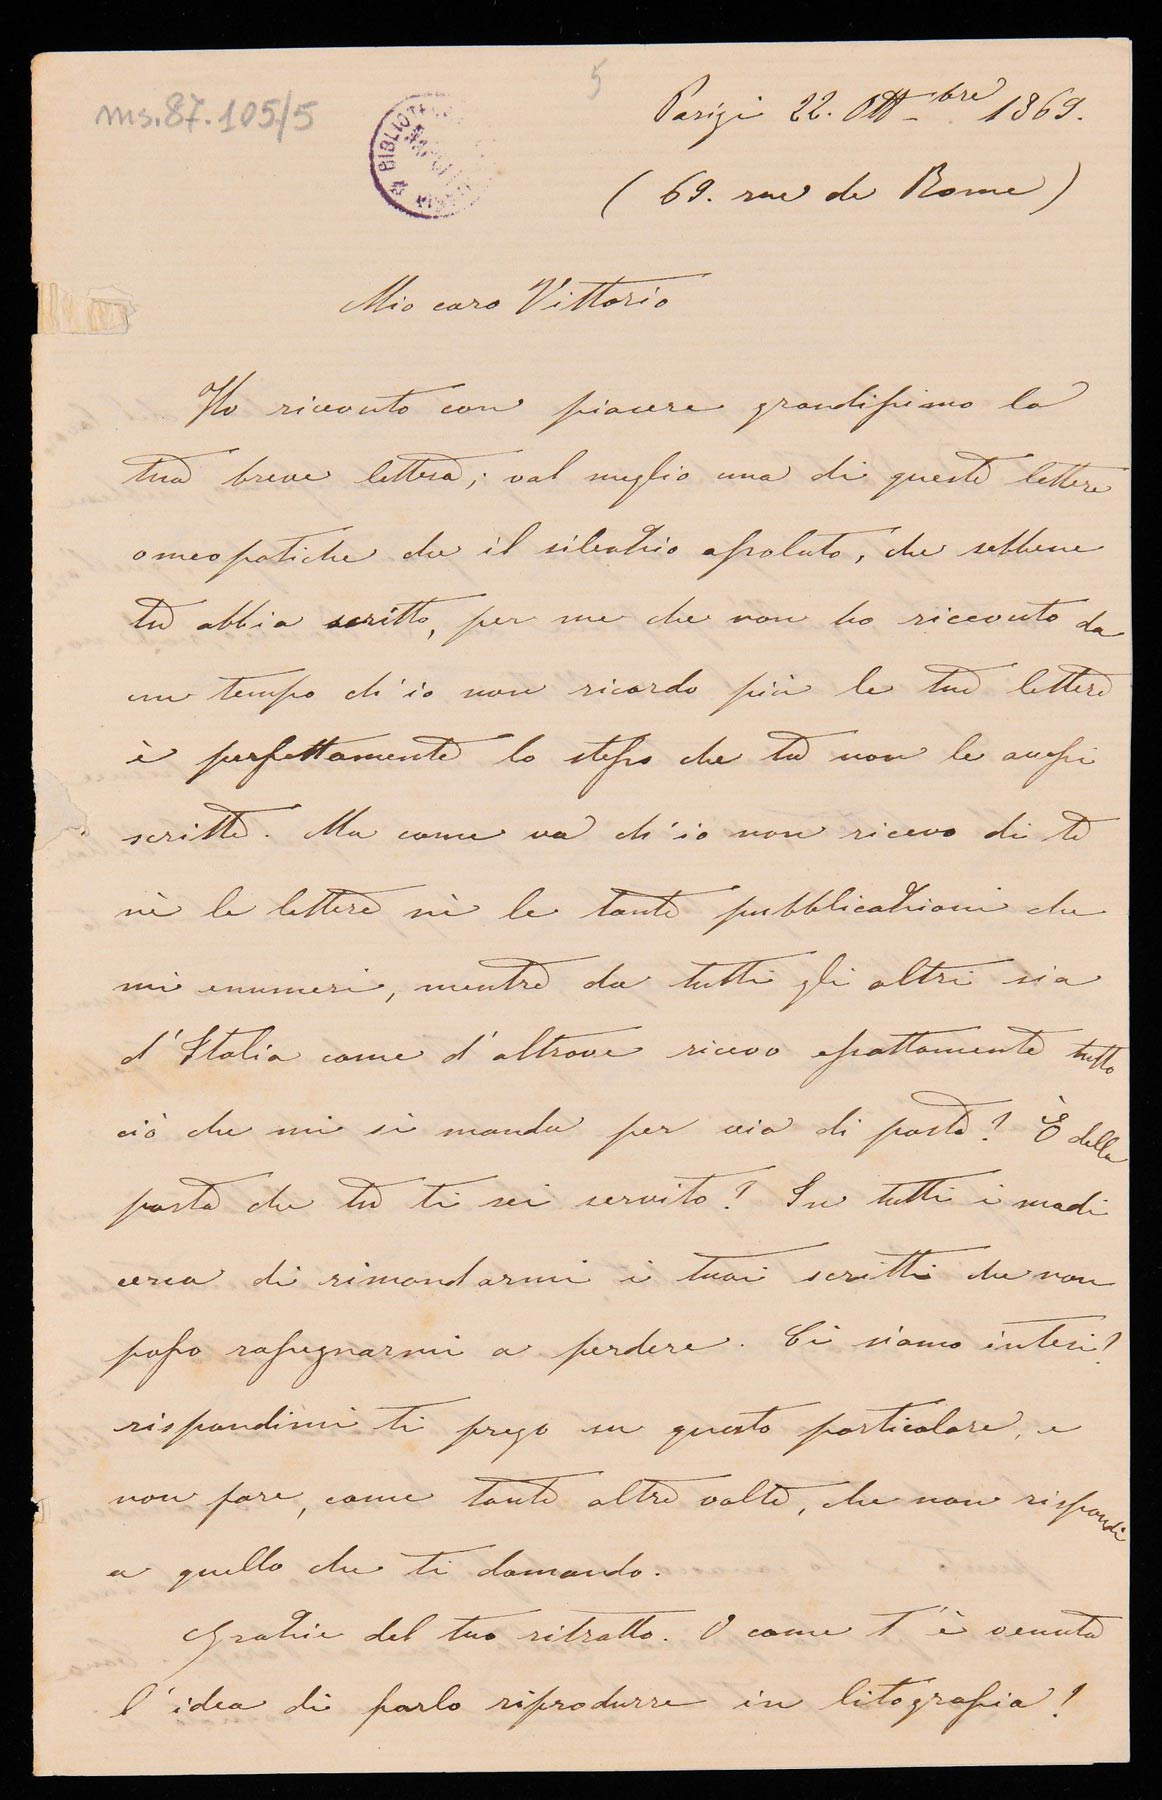 ms. 87.105/5
5
BIBLIOT
Parigi 22. Ottbre 1869.
(69. rue de Rome)
Mio caro Vittorio
Ho ricevuto con piacere grandissimo la
tua breve lettera; val meglio una di queste lettere
omeopatiche che il silenzio assoluto, che sebbene
tu abbia scritto, per me che non ho ricevuto da
un tempo ch'io non ricordo più le tue lettere
è perfettamente lo stesso che tu non le avessi
scritte. Ma come va ch'io non ricevo di te
nè le lettere nè le tante pubblicazioni che
mi enumeri, mentre da tutti gli altri sia
d'Italia come d'altrove ricevo esattamente tutto
ciò che mi si manda per via di posta? È della
posta che tu ti sei servito? In tutti i modi
cerca di rimandarmi i tuoi scritti che non
posso rassegnarmi a perdere. Ci siamo intesi?
rispondimi ti prego su questo particolare, e
non fare, come tante altre volte, che non rispondi
a quello che ti domando.
Grazie del tuo ritratto. O come t'è venuta
l'idea di farlo riprodurre in litografia?